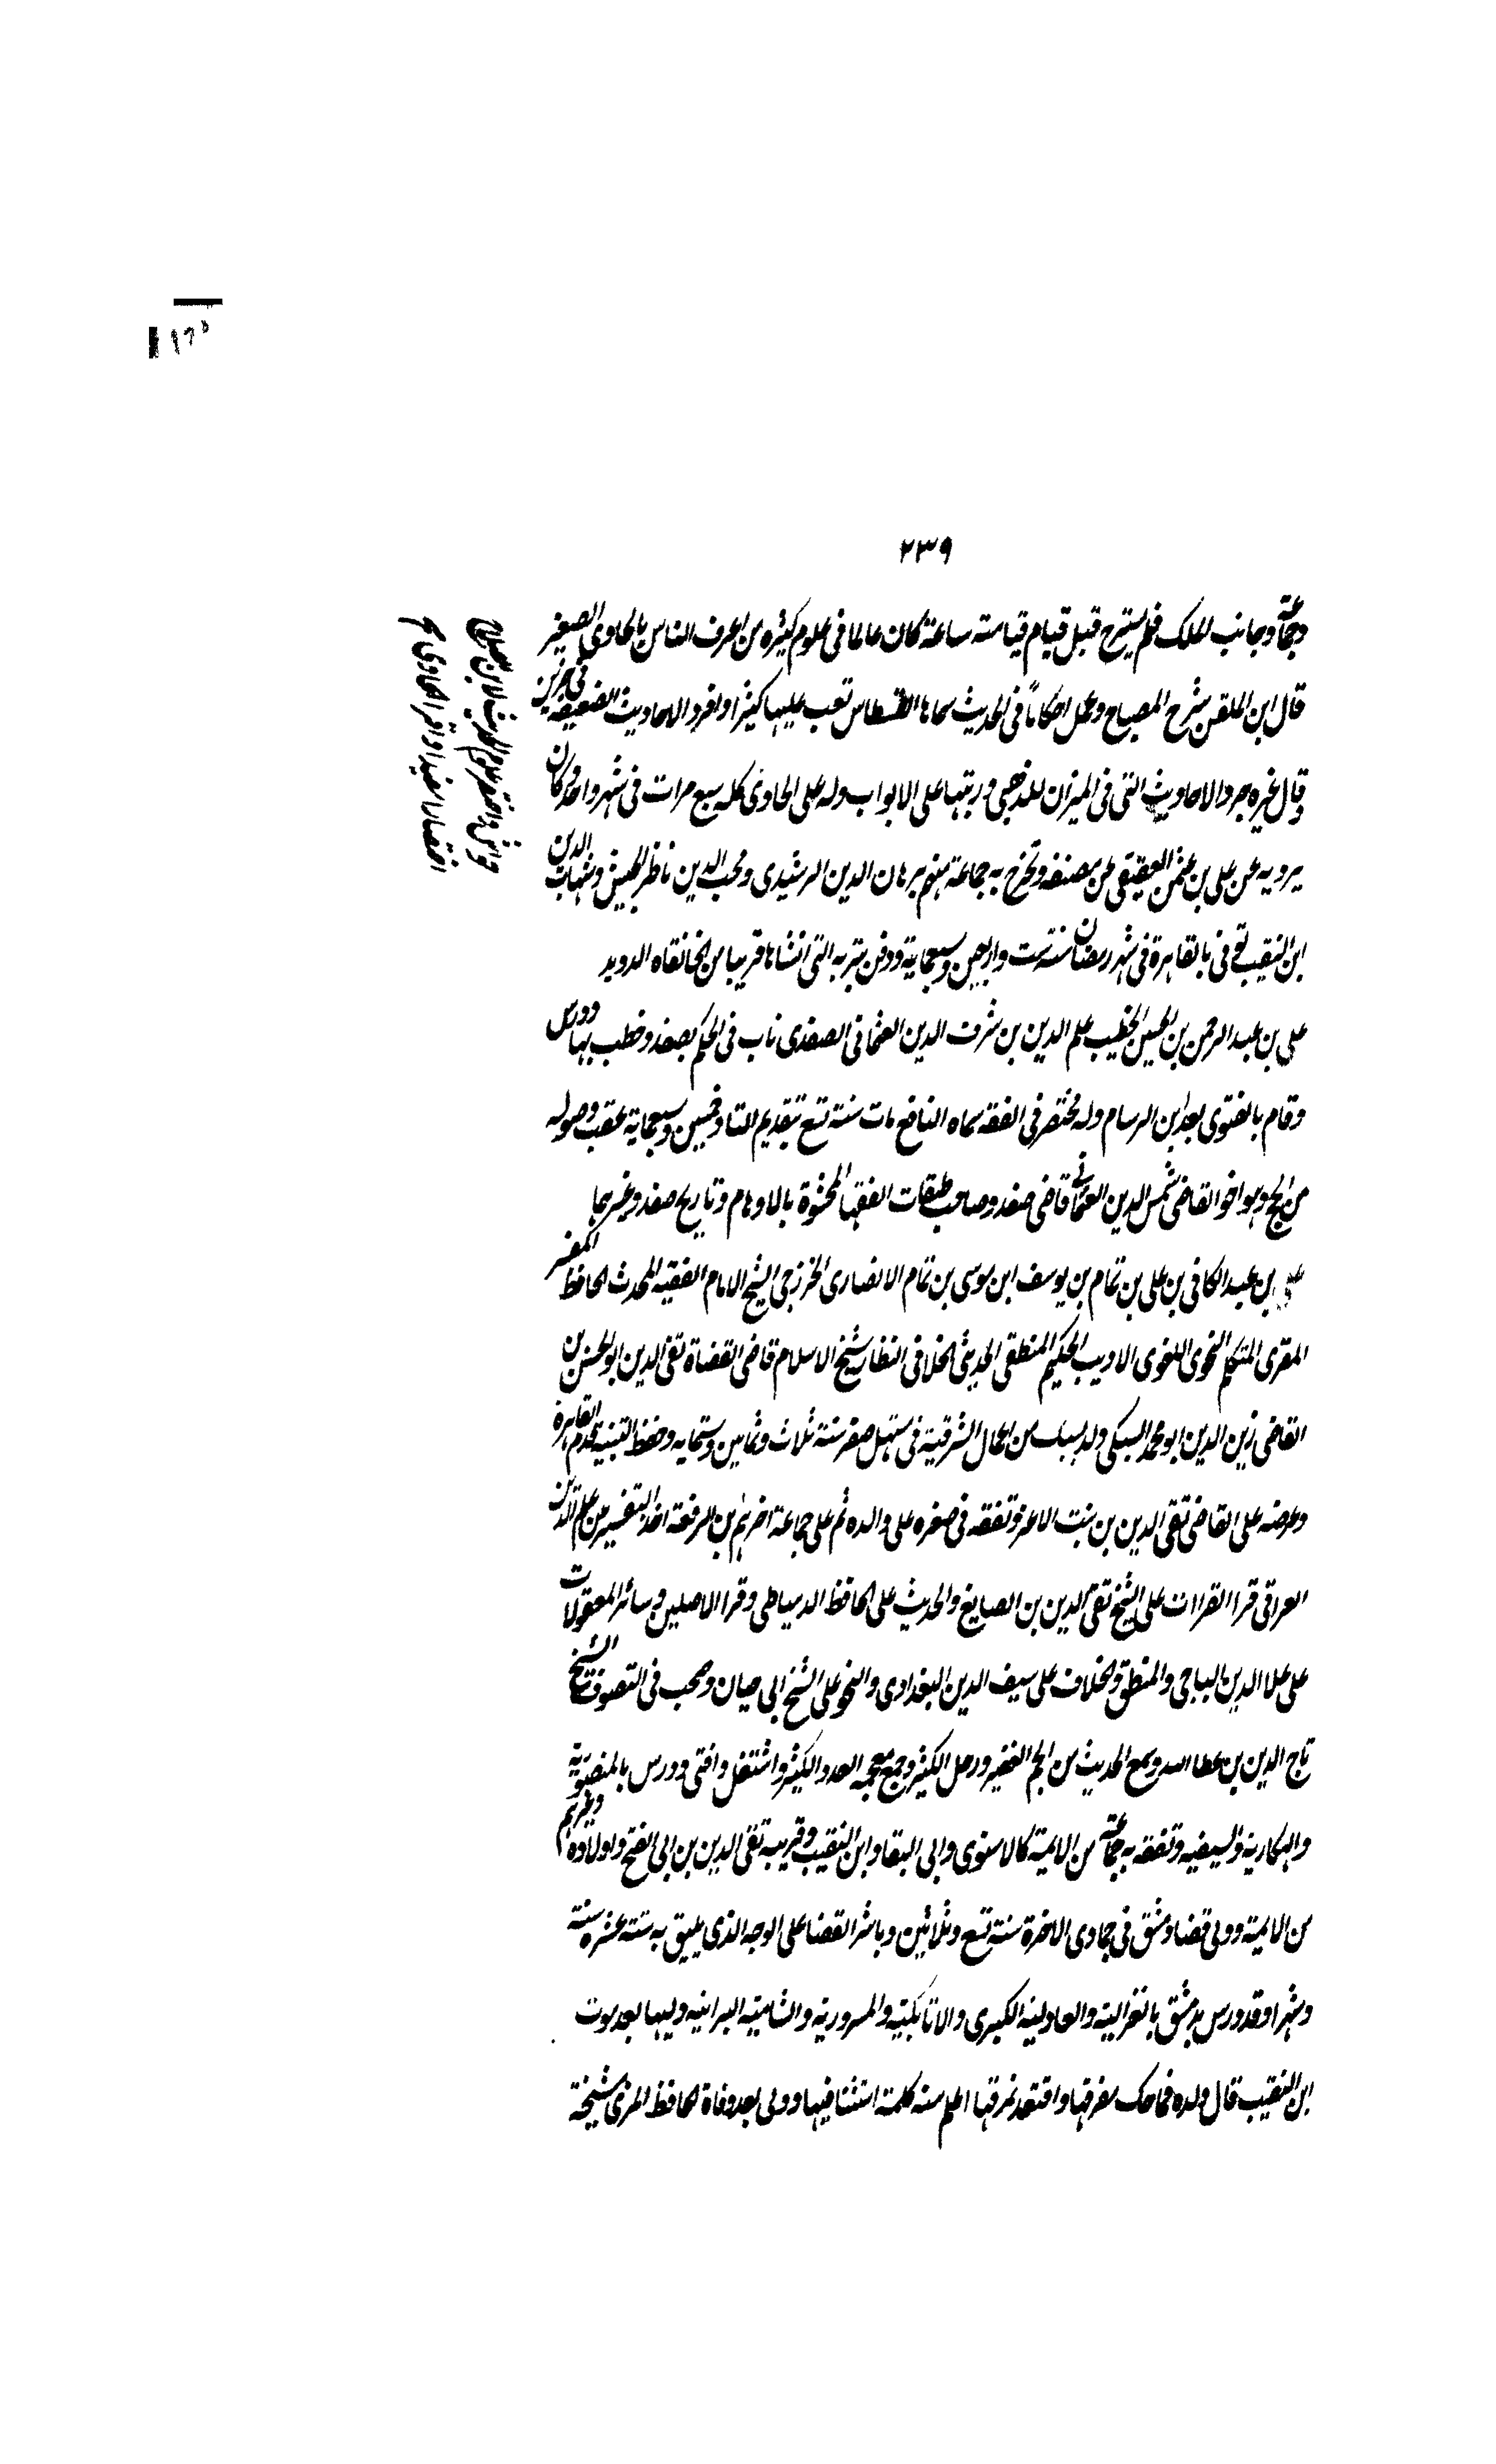 ٢٣٩
وجماعة وجانب للملك فلم يسترح قبل قيام قيامته ساعة كان عالما في علوم كثيره من اعرف الناس بالحاوى الصغير
قال ابن الملقن شرح المصباح وعمل احكاماً في الحديث سماها القسطاس تعب عليها كثيرا وافرد الاحاديث الضعيفة في جزئين
وقال غيره جرد الاحاديث التى في الميزان للذهبى ورتبها على الابواب وله على الحاوى كله سبع مرات في شهر واحد وكان
يرويه عن على بن عثمن العفيفى عن مصنفه وتخرج به جماعة منهم برهان الدين الرشيدى ومحب الدين ناظر الجيش وشهاب الدين
ابن النقيب توفى بالقاهرة في شهر رمضان سنة ست واربعين وسبعماية ودفن بتربه التى انشاها قريبا من الخانقاه الدويد
على بن عبد الرحمن بن الحسين الخطيب علم الدين بن شرف الدين العثمانى الصفدى ناب في الحكم بصفد وخطب بها ودرس
وقام بالفتوى بعد ابن الرسام وله مختصر في الفقه سماه النافع مات سنة تسع بتقديم التاء وخمسين وسبعماية عقب وصوله
من الحج وهو اخو القاضى شمس الدين العثمانى قاضى صفد وصاحب طبقات الفقها المحشوة بالاوهام وتاريخ صفد وغيرهما
على بن عبد الكافى بن على بن تمام بن يوسف ابن موسى بن تمام الانصارى الخزرجى الشيخ الامام الفقيه المحدث الحافظ المفسر
المقرى المتكلم النحوى اللغوى الاديب الحكيم المنطقى الجدلى الخلافى النظار شيخ الاسلام قاضى القضاة تقى الدين ابو الحسن بن
القاضى زين الدين ابو محمد السبكى ولد بسبك من اعمال الشرقية في مستهل صفر سنة ثلاث وثمانين وستمايه وحفظ التنبيه وقدم القاهرة
وعرضه على القاضى تقى الدين بن بنت الاعز وتفقه في صغره على والده ثم على جماعة اخرهم ابن الرفعة اخذ التفسير من علم الدين
العراقى قرا القراات على الشيخ تقى الدين بن الصايغ والحديث على الحافظ الدمياطى وقرا الاصلين وسائر المعقولات
على علا الدين الباجى والمنطق والخلاف على سيف الدين البغدادى والنحو على الشيخ ابى حيان وصحب في التصوف الشيخ
تاج الدين بن عطا الله وسمع الحديث من الجم الغفير ورحل الكثير وجمع معجمه العدد الكثير واشتغل وافتى ودرس بالمنصورية
والهكارية والسيفيه وتفقه به جماعة من الايمة كالاسنوى وابى البقا وابن النقيب وقريبه تقى الدين بن ابى الفتح واولاده وغيرهم
من الايمة وولى قضا دمشق في جمادى الاخرة سنة تسع وثلاثين وباشر القضا على الوجه الذى يليق به ستة عشره سنة
وشهرا وقد درس بدمشق بالغزالية والعادلية الكبرى والاتابكية والمسرورية والشامية البرانية وليها بعد موت
ابن النقيب قال ولده فما حل مفرقها واقتعد نمرقها اعلم منه كلمة استثنا فيها وولى بعد وفاة الحافظ المزى مشيخة